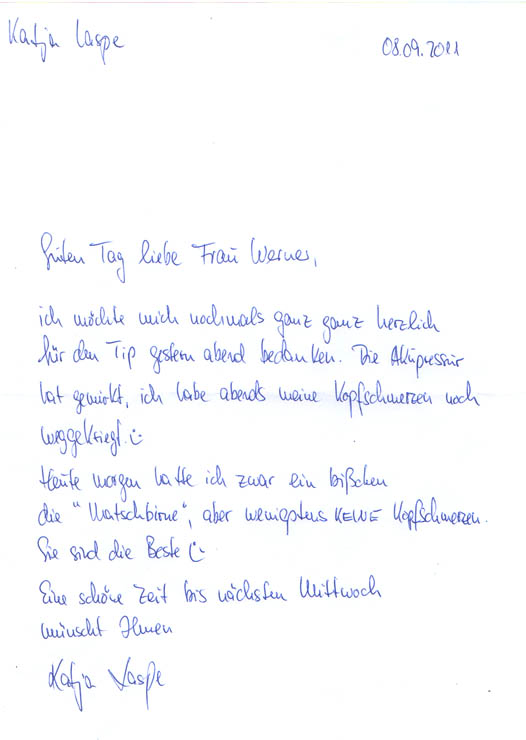 Katja Laspe
08.09.2011
Guten Tag liebe Frau Werner,
ich möchte mich nochmals ganz ganz herzlich
für den Tip gestern abend bedanken. Die Aküpressur
hat gewirkt, ich habe abends meine Kopfschmerzen noch
weggekriegt. :)
Heute morgen hatte ich zwar ein bißchen
die "Matschbirne", aber wenigstens KEINE Kopfschmerzen.
Sie sind die Beste :)
Eine schöne Zeit bis nächsten Mittwoch
wünscht Ihnen
Katja Laspe